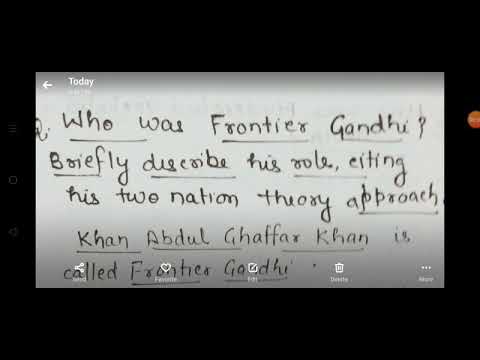 Today
Q. Who was Frontier Gandhi?
Briefly describe his role, citing
his two nation theory approach.
Khan Abdul Ghaffar Khan is
called Frontier Gandhi.
Send Favorite Edit Delete More